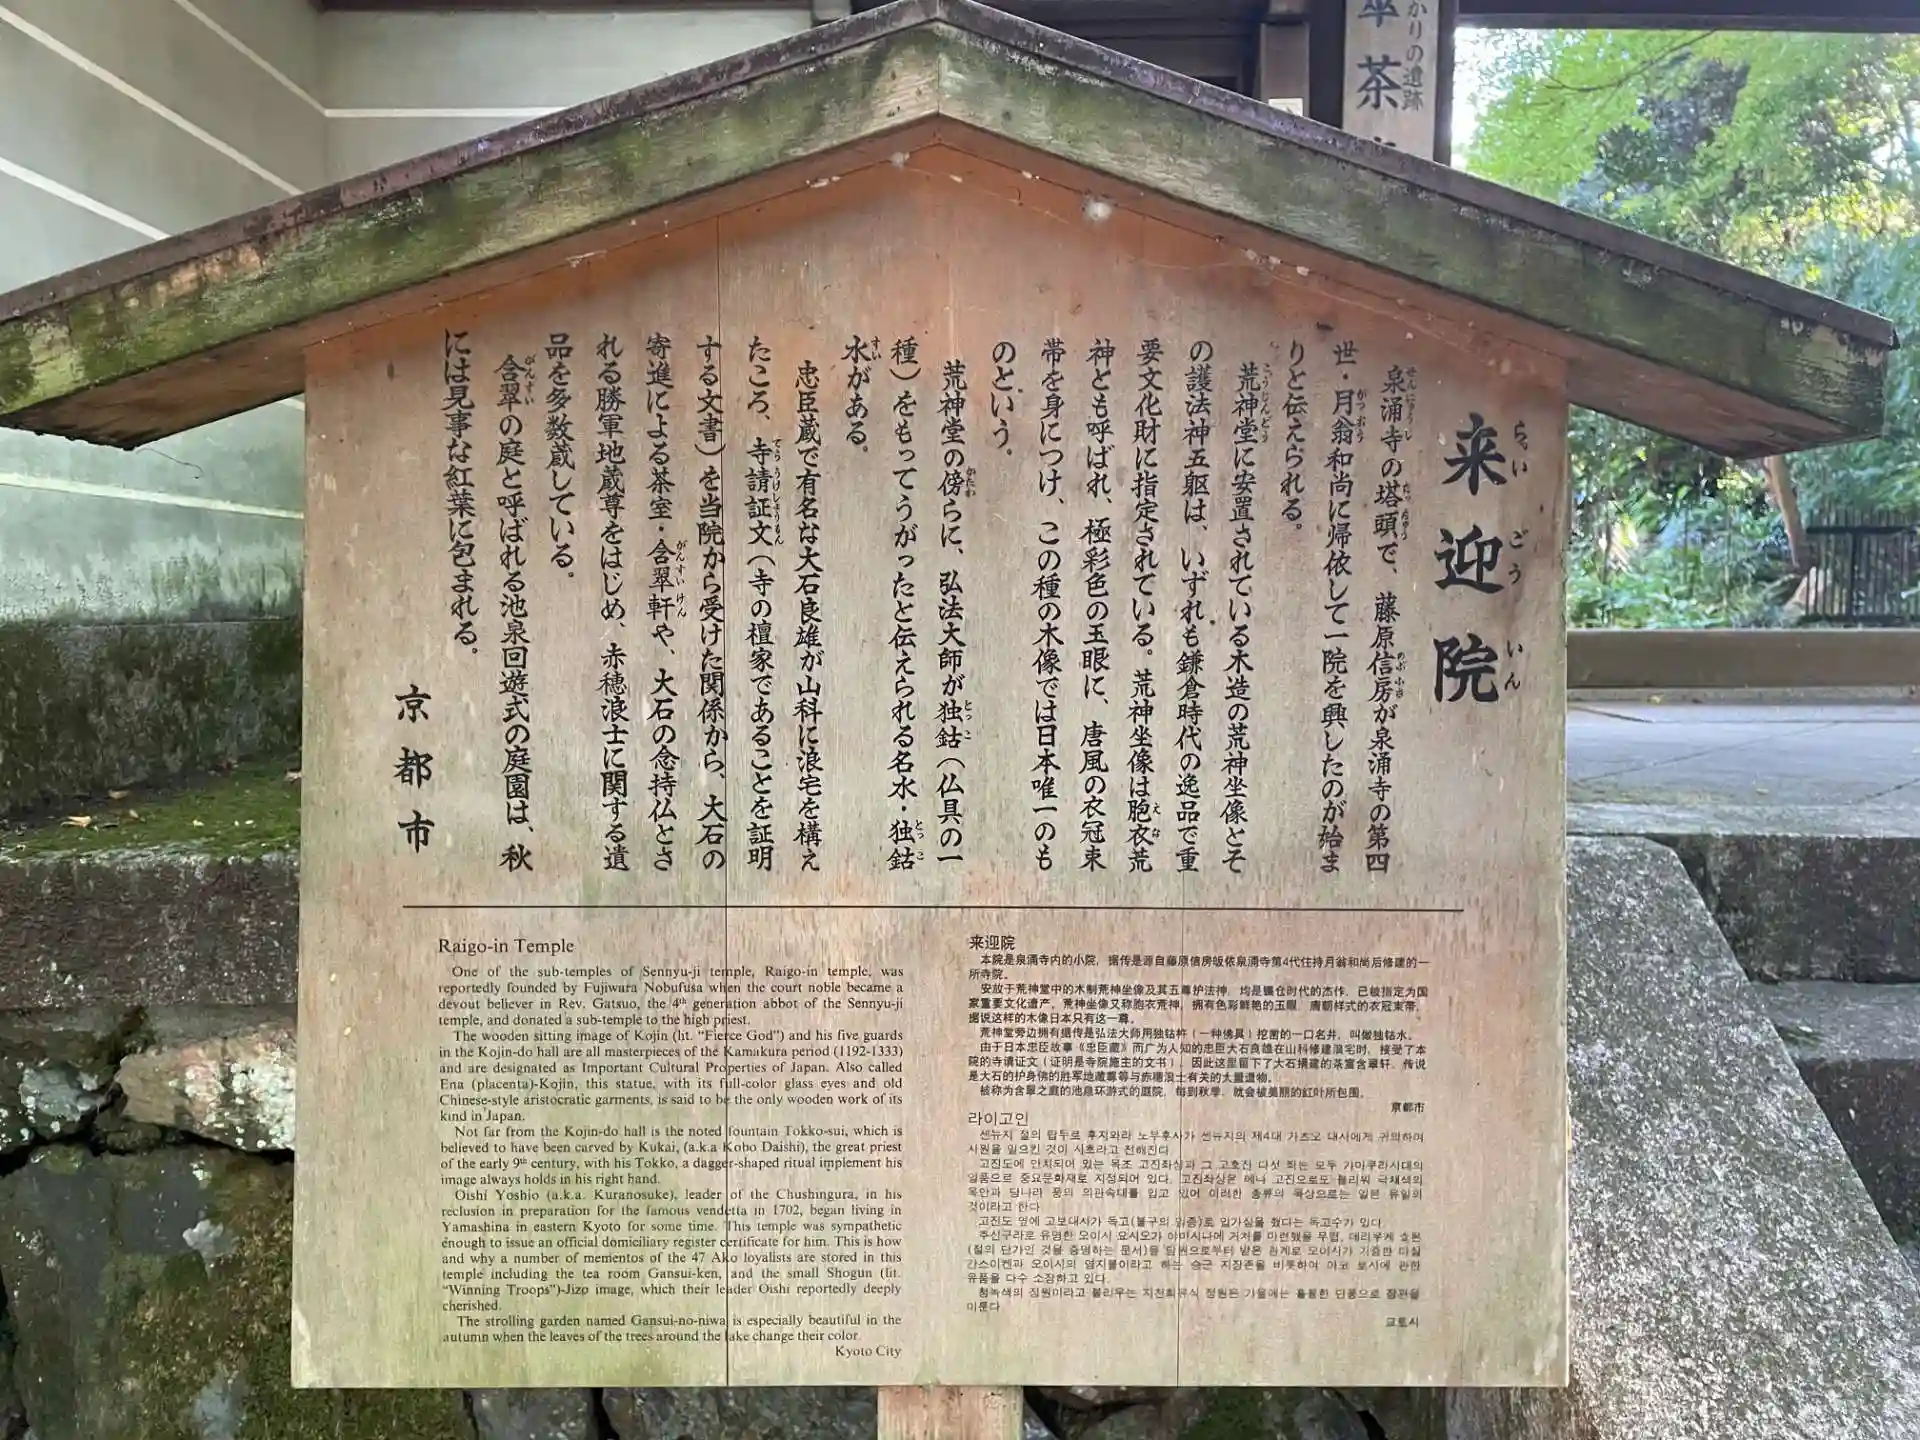 かりの遺跡
茶
来迎院
らいごういん
泉涌寺の塔頭で、藤原信房が泉涌寺の第四
世・月翁和尚に帰依して一院を興したのが始ま
りと伝えられる。
荒神堂に安置されている木造の荒神坐像とそ
の護法神五躯は、いずれも鎌倉時代の逸品で重
要文化財に指定されている。荒神坐像は胞衣荒
神とも呼ばれ、極彩色の玉眼に、唐風の衣冠束
帯を身につけ、この種の木像では日本唯一のも
のという。
荒神堂の傍らに、弘法大師が独鈷(仏具の一
種)をもってうがったと伝えられる名水・独鈷
水がある。
忠臣蔵で有名な大石良雄が山科に浪宅を構え
たころ、寺請証文(寺の檀家であることを証明
する文書)を当院から受けた関係から、大石の
寄進による茶室・含翠軒や、大石の念持仏とさ
れる勝軍地蔵尊をはじめ、赤穂浪士に関する遺
品を多数蔵している。
含翠の庭と呼ばれる池泉回遊式の庭園は、秋
には見事な紅葉に包まれる。
京都市
Raigo-in Temple
One of the sub-temples of Sennyu-ji temple, Raigo-in temple, was
reportedly founded by Fujiwara Nobufusa when the court noble became a
devout believer in Rev. Gatsuo, the 4th generation abbot of the Sennyu-ji
temple, and donated a sub-temple to the high priest.
The wooden sitting image of Kojin (lit. “Fierce God”) and his five guards
in the Kojin-do hall are all masterpieces of the Kamakura period (1192-1333)
and are designated as Important Cultural Properties of Japan. Also called
Ena (placenta)-Kojin, this statue, with its full-color glass eyes and old
Chinese-style aristocratic garments, is said to be the only wooden work of its
kind in Japan.
Not far from the Kojin-do hall is the noted fountain Tokko-sui, which is
believed to have been carved by Kukai, (a.k.a Kobo Daishi), the great priest
of the early 9th century, with his Tokko, a dagger-shaped ritual implement his
image always holds in his right hand.
Oishi Yoshio (a.k.a. Kuranosuke), leader of the Chushingura, in his
reclusion in preparation for the famous vendetta in 1702, began living in
Yamashina in eastern Kyoto for some time. This temple was sympathetic
enough to issue an official domiciliary register certificate for him. This is how
and why a number of mementos of the 47 Ako loyalists are stored in this
temple including the tea room Gansui-ken, and the small Shogun (lit.
“Winning Troops”)-Jizo image, which their leader Oishi reportedly deeply
cherished.
The strolling garden named Gansui-no-niwa is especially beautiful in the
autumn when the leaves of the trees around the lake change their color.
Kyoto City
来迎院
本院是泉涌寺内的小院，据传是源自藤原信房皈依泉涌寺第4代住持月翁和尚后修建的一
所寺院。
安放于荒神堂中的木制荒神坐像及其五尊护法神，均是镰仓时代的杰作，已被指定为国
家重要文化遗产。荒神坐像又称胞衣荒神，拥有色彩鲜艳的玉眼，唐朝样式的衣冠束带，
据说这样的木像日本只有这一尊。
荒神堂旁边拥有据传是弘法大师用独钴杵（一种佛具）挖凿的一口名井，叫做独钴水。
由于日本忠臣故事《忠臣藏》而广为人知的忠臣大石良雄在山科修建浪宅时，接受了本
院的寺请证文（证明是寺院施主的文书），因此这里留下了大石捐建的茶室含翠轩，传说
是大石的护身佛的胜军地藏尊等与赤穗浪士有关的大量遗物。
被称为含翠之庭的池泉环游式的庭院，每到秋季，就会被美丽的红叶所包围。
京都市
라이고인
센뉴지 절의 탑두로 후지와라 노부후사가 센뉴지의 제4대 가츠오 대사에게 귀의하여
사원을 일으킨 것이 시초라고 전해진다.
고진도에 안치되어 있는 목조 고진좌상과 그 고호진 다섯 좌는 모두 가마쿠라시대의
일품으로 중요문화재로 지정되어 있다. 고진좌상은 에나 고진으로도 불리워 극채색의
옥안과 당나라 풍의 의관속대를 입고 있어 이러한 종류의 목상으로는 일본 유일의
것이라고 한다.
고진도 옆에 고보대사가 독고(불구의 일종)로 입가심을 했다는 독고수가 있다.
주신구라로 유명한 오이시 요시오가 야마시나에 거처를 마련했을 무렵,
(절의 단가인 것을 증명하는 문서)을 당원으로부터 받은 관계로 오이시가 기증한 다실
간스이켄과 오이시의 염지불이라고 하는 승군 지장존을 비롯하여 아코 로시에 관한
유품을 다수 소장하고 있다.
청녹색의 정원이라고 불리우는 지천회유식 정원은 가을에는 훌륭한 단풍으로 장관을
이룬다.
교토시